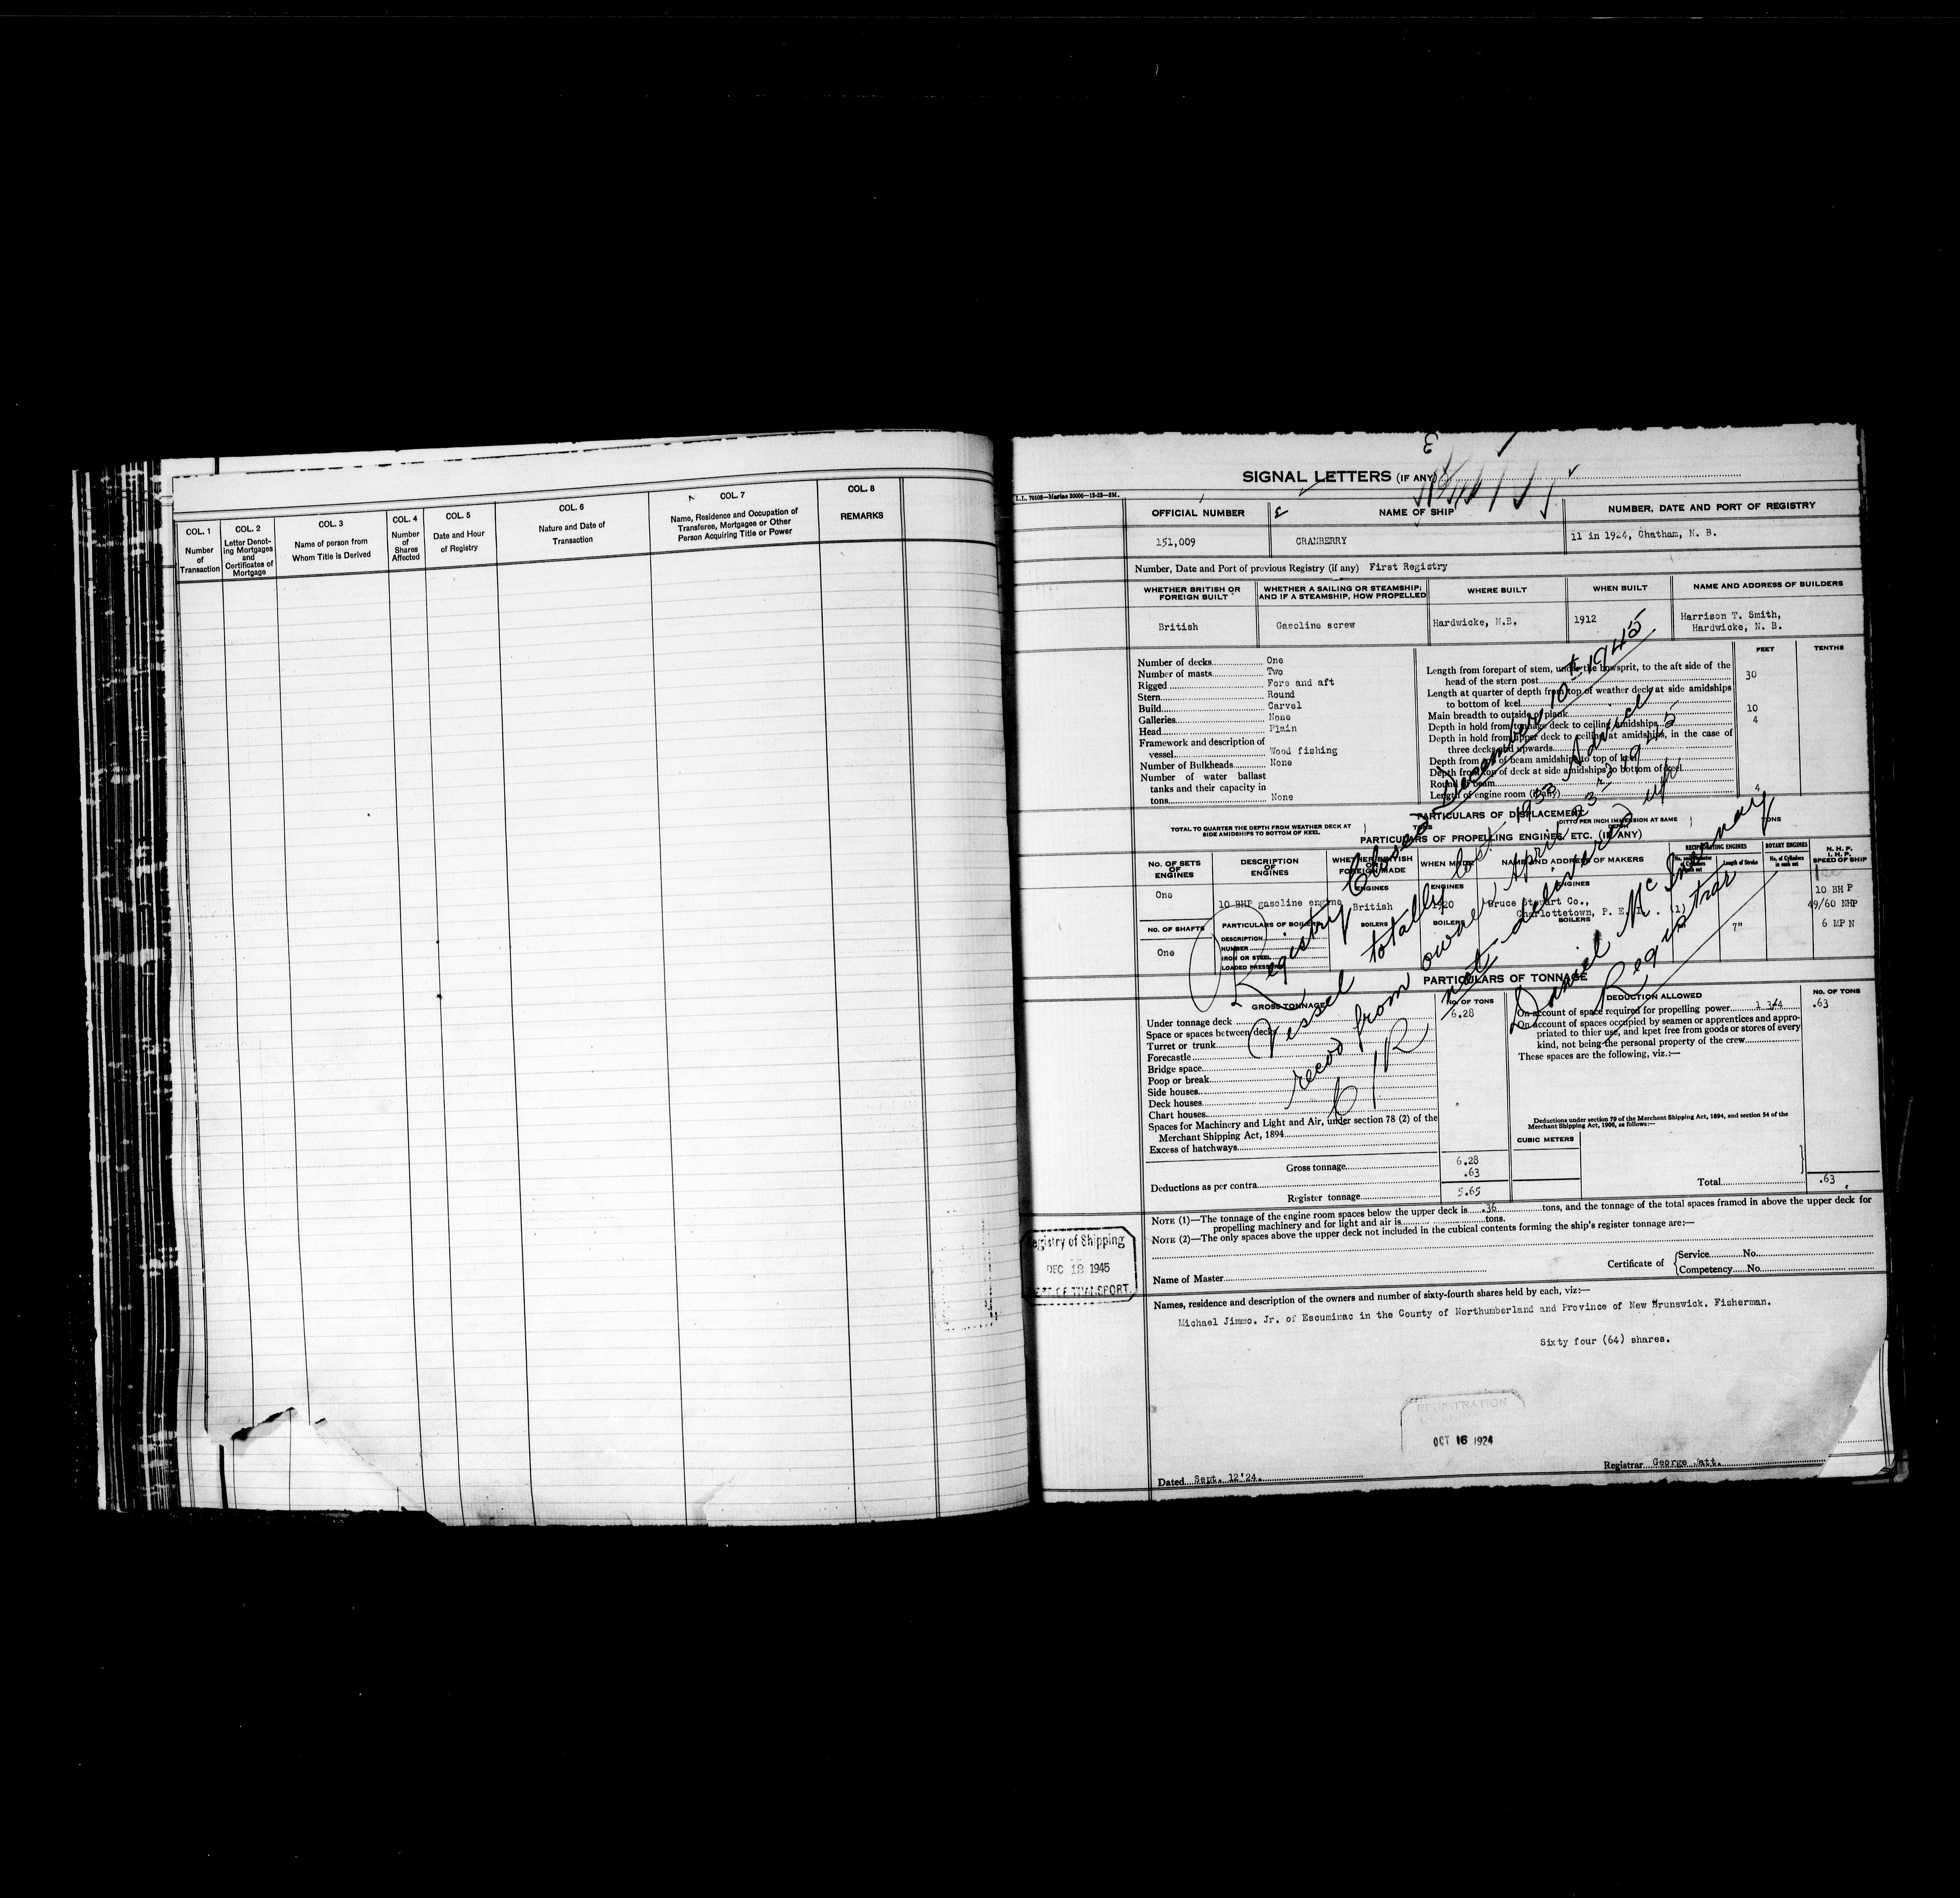 COL. 1
Number
of
Transaction
COL. 2
Letter Denot-
ing Mortgages
and
Certificates of
Mortgage
COL. 3
Name of person from
Whom Title is Derived
COL. 4
Number
of
Shares
Affected
COL. 5
Date and Hour
of Registry
COL. 6
Nature and Date of
Transaction
COL. 7
Name, Residence and Occupation of
Transferee, Mortgagee or Other
Person Acquiring Title or Power
COL. 8
REMARKS
SIGNAL LETTERS (IF ANY)
OFFICIAL NUMBER
NAME OF SHIP
NUMBER, DATE AND PORT OF REGISTRY
151,009
CRANBERRY
11 in 1924, Chatham, N. B.
Number, Date and Port of previous Registry (if any) First Registry
WHETHER BRITISH OR
FOREIGN BUILT
WHETHER A SAILING OR STEAMSHIP;
AND IF A STEAMSHIP, HOW PROPELLED
WHERE BUILT
WHEN BUILT
NAME AND ADDRESS OF BUILDERS
British
Gasoline screw
Hardwicke, N.B.
1912
Harrison T. Smith,
Hardwicke, N. B.
Number of decks One
Number of masts Two
Rigged Fore and aft
Stern Round
Build Carvel
Galleries None
Head Plain
Framework and description of
vessel Wood fishing
Number of Bulkheads None
Number of water ballast
tanks and their capacity in
tons None
FEET
TENTHS
Length from forepart of stem, under the bowsprit, to the aft side of the
head of the stern post 30
Length at quarter of depth from top of weather deck at side amidships
to bottom of keel
Main breadth to outside of plank 10
Depth in hold from tonnage deck to ceiling amidships 4
Depth in hold from upper deck to ceiling at amidships, in the case of
three decks and upwards
Depth from top of beam amidships to top of keel
Depth from top of deck at side amidships to bottom of keel
Round of beam
Length of engine room (if any) 4
PARTICULARS OF DISPLACEMENT
TOTAL TO QUARTER THE DEPTH FROM WEATHER DECK AT
SIDE AMIDSHIPS TO BOTTOM OF KEEL
TONS
DITTO PER INCH IMMERSION AT SAME
DEPTH
TONS
PARTICULARS OF PROPELLING ENGINES, ETC. (IF ANY)
NO. OF SETS
OF
ENGINES
DESCRIPTION
OF
ENGINES
WHETHER BRITISH
OR
FOREIGN MADE
WHEN MADE
NAME AND ADDRESS OF MAKERS
RECIPROCATING ENGINES
Length of Stroke
ROTARY ENGINES
No. of Cylinders
in each set
N. H. P.
I. H. P.
SPEED OF SHIP
ENGINES
ENGINES
ENGINES
One
10 BHP gasoline engine
British
1920
Bruce Stewart Co.,
Charlottetown, P. E. I.
(1)
7"
10 BHP
49/60 NHP
6 MPN
NO. OF SHAFTS
One
PARTICULARS OF BOILERS
DESCRIPTION
NUMBER
IRON OR STEEL
LOADED PRESSURE
BOILERS
BOILERS
BOILERS
PARTICULARS OF TONNAGE
GROSS TONNAGE
NO. OF TONS
Under tonnage deck 6.28
Space or spaces between decks
Turret or trunk
Forecastle
Bridge space
Poop or break
Side houses
Deck houses
Chart houses
Spaces for Machinery and Light and Air, under section 78 (2) of the
Merchant Shipping Act, 1894
Excess of hatchways
Gross tonnage 6.28
Deductions as per contra .63
Register tonnage 5.65
DEDUCTION ALLOWED
NO. OF TONS
On account of space required for propelling power .63
On account of spaces occupied by seamen or apprentices and appro-
priated to thier use, and kpet free from goods or stores of every
kind, not being the personal property of the crew
These spaces are the following, viz.:—
Deductions under section 79 of the Merchant Shipping Act, 1894, and section 54 of the
Merchant Shipping Act, 1906, as follows:—
CUBIC METERS
Total .63
Registry Closed December 10th 1945
Vessel totally lost 1933 Advice
recvd from owner April 23rd 1945
C/R not delivered up
Daniel McInerney
Registrar
NOTE (1)—The tonnage of the engine room spaces below the upper deck is .36 tons, and the tonnage of the total spaces framed in above the upper deck for
propelling machinery and for light and air is tons.
NOTE (2)—The only spaces above the upper deck not included in the cubical contents forming the ship's register tonnage are:—
Registry of Shipping
DEC 18 1945
DEPT OF TRANSPORT
Name of Master
Certificate of
Service No.
Competency No.
Names, residence and description of the owners and number of sixty-fourth shares held by each, viz:—
Michael Jimmo. Jr. of Escuminac in the County of Northumberland and Province of New Brunswick. Fisherman.
Sixty four (64) shares.
REGISTRATION
OCT 16 1924
Dated Sept. 12'24.
Registrar George Watt.